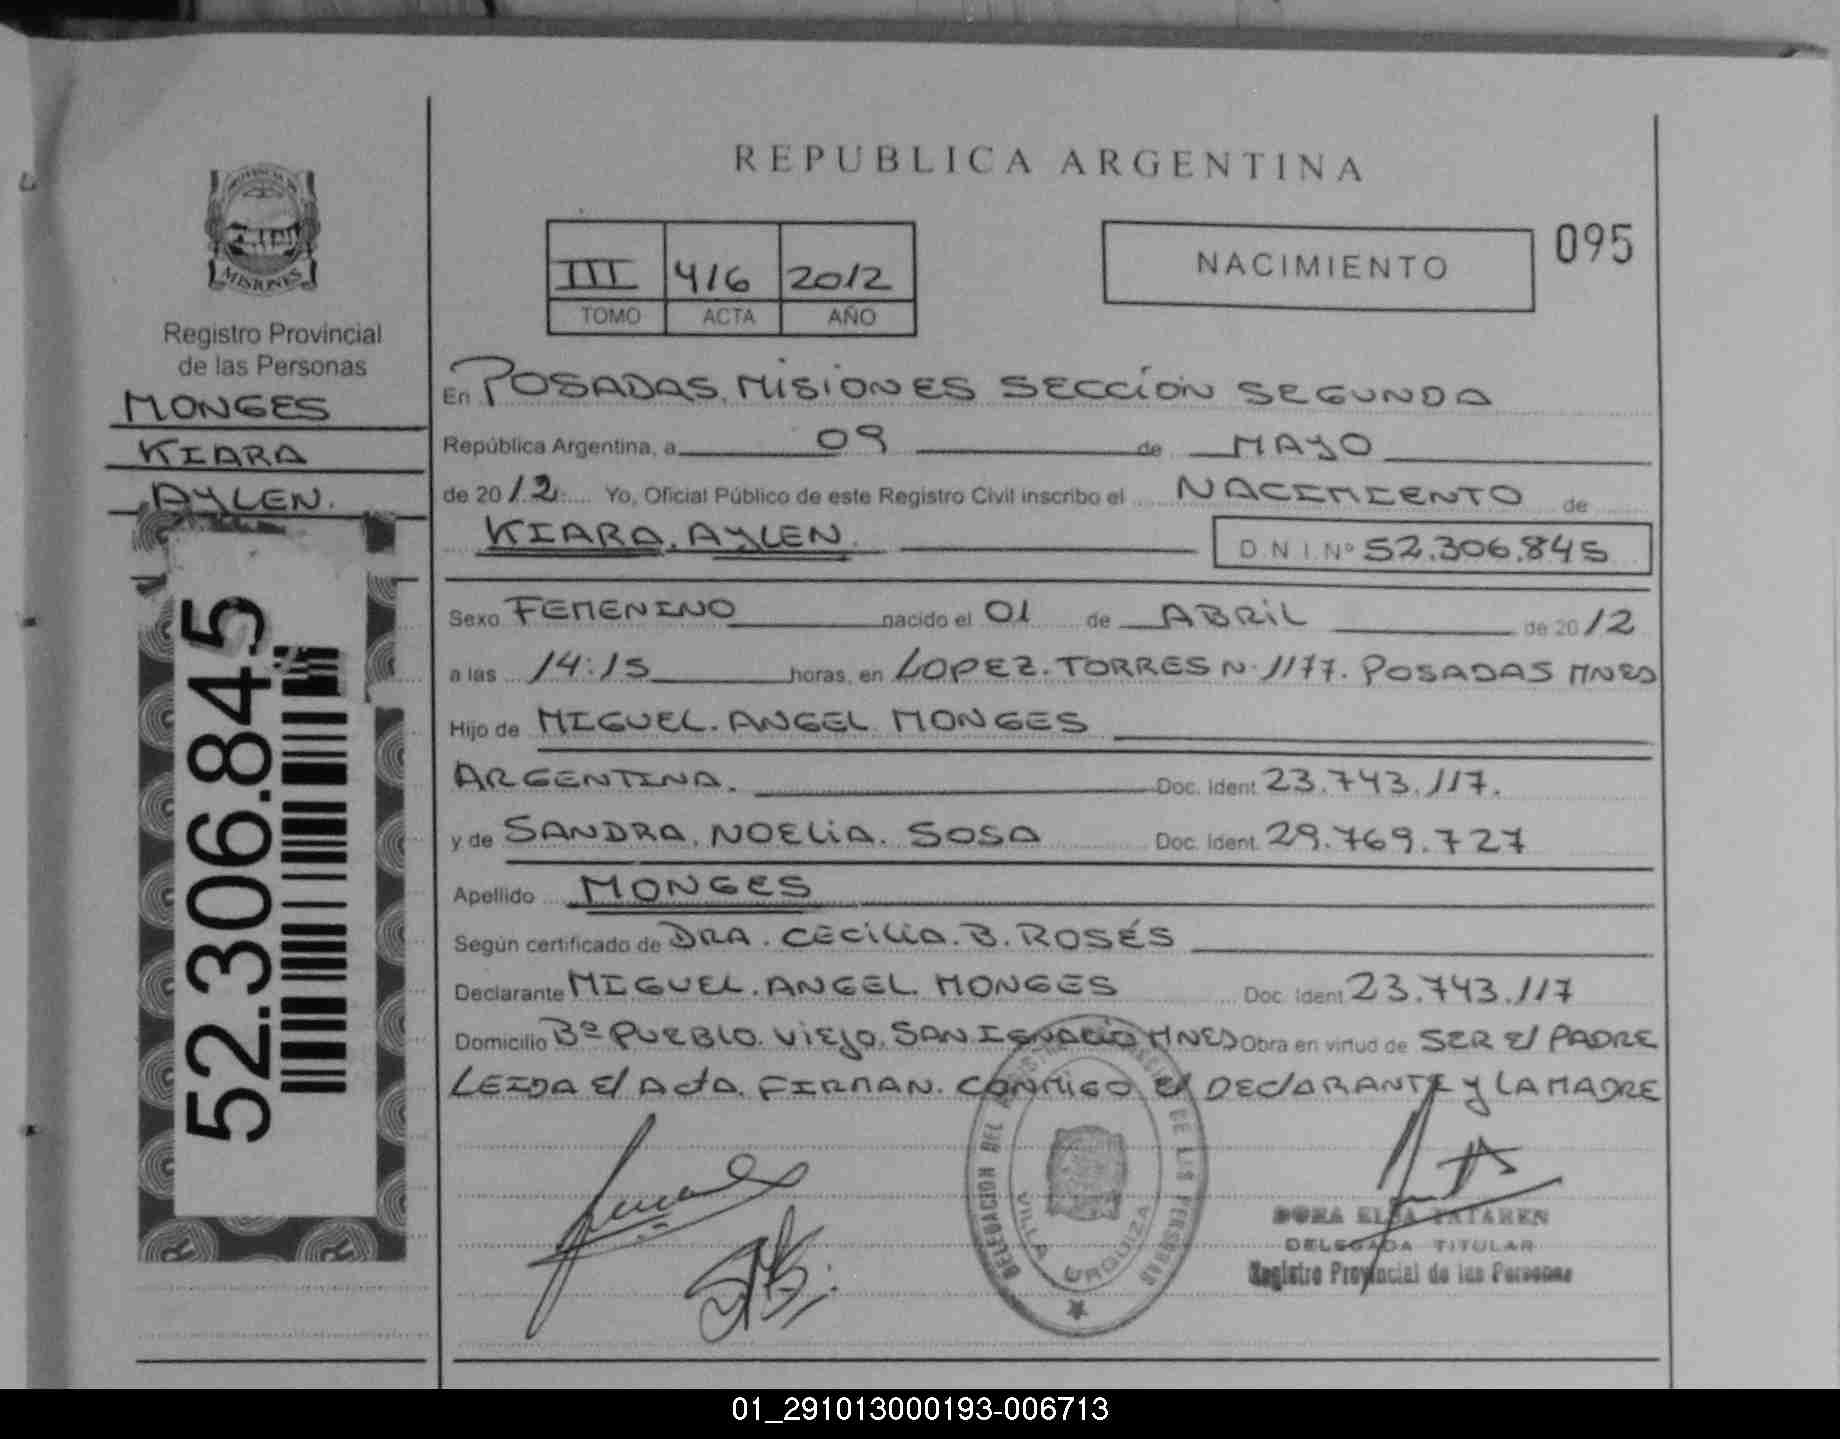 REPUBLICA ARGENTINA
PROVINCIA DE
MISIONES
Registro Provincial
de las Personas
MONGES
KIARA
AYLEN.
52.306.845
III 416 2012
TOMO ACTA AÑO
NACIMIENTO
095
En POSADAS, MISIONES SECCIÓN SEGUNDA
República Argentina, a 09 de MAYO
de 2012 Yo, Oficial Público de este Registro Civil inscribo el NACIMIENTO de
KIARA. AYLEN. D.N.I.Nº 52.306.845
Sexo FEMENINO nacido el 01 de ABRIL de 2012
a las 14:15 horas, en LOPEZ. TORRES N. 1177. POSADAS MNES
Hijo de MIGUEL. ANGEL MONGES
ARGENTINA. Doc. Ident. 23.743.117.
y de SANDRA. NOELIA. SOSA Doc. Ident. 29.769.727
Apellido MONGES
Según certificado de DRA. CECILIA. B. ROSÉS
Declarante MIGUEL. ANGEL. MONGES Doc. Ident. 23.743.117
Domicilio Bº PUEBLO. VIEJO. SAN IGNACIO MNES Obra en virtud de SER El PADRE
LEIDA El ActA. FIRMAN. CONMIGO El DEClARANTE y LA MADRE
DELEGACION DEL REGISTRO PROVINCIAL DE LAS PERSONAS
VILLA URQUIZA
DORA ELSA TATAREN
DELEGADA TITULAR
Registro Provincial de las Personas
01_291013000193-006713